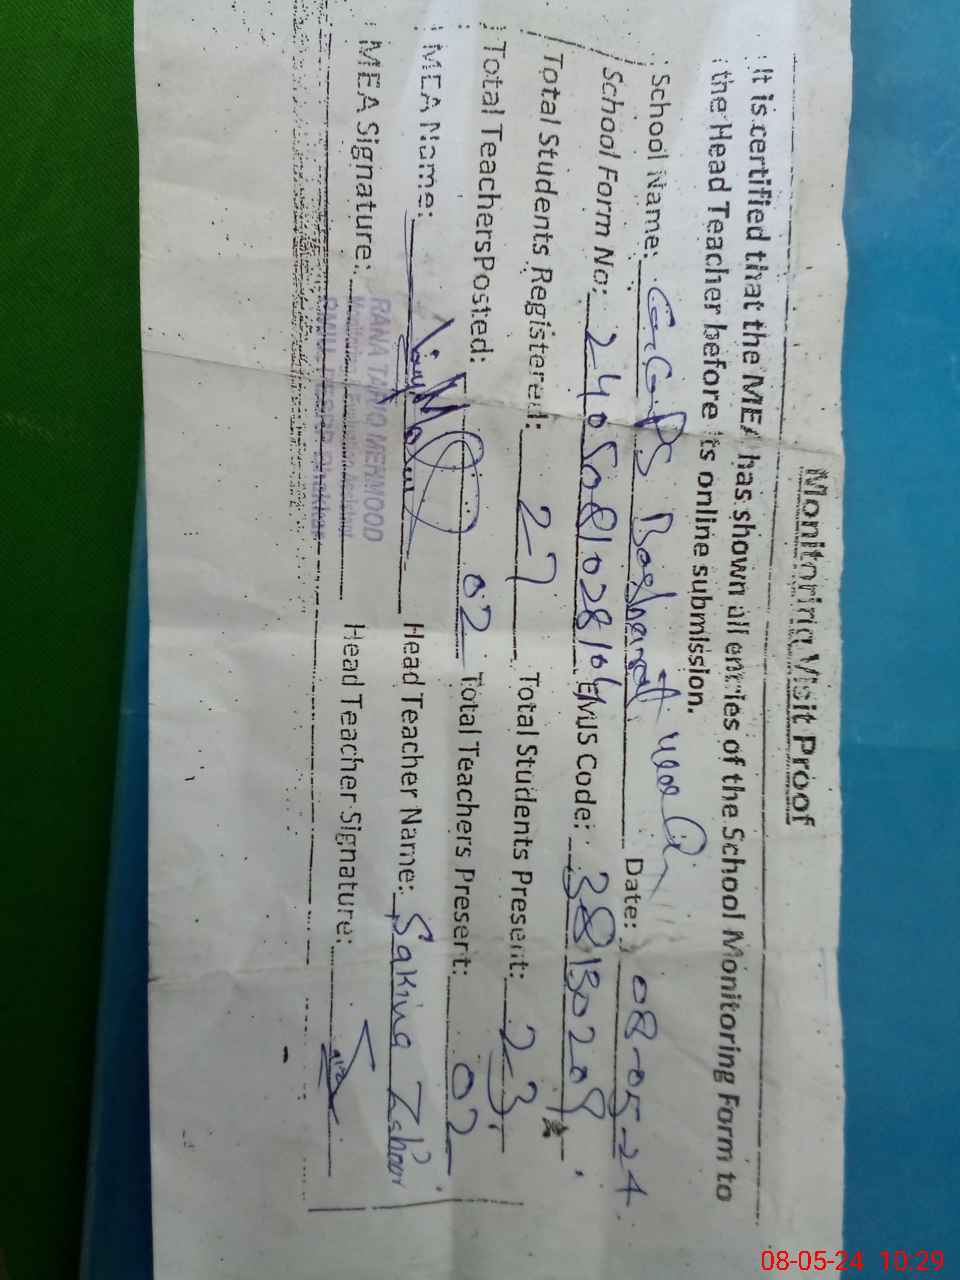 Monitoring Visit Proof
It is certified that the MEA has shown all entries of the School Monitoring Form to
the Head Teacher before its online submission.
School Name: GGPS Date: 08-05-24
School Form No: EMIS Code: 38130208
Total Students Registered: 27 Total Students Present: 23
Total Teachers Posted: 02 Total Teachers Present: 02
MEA Name: Head Teacher Name: Sakina Zahoor
MEA Signature: Head Teacher Signature:
RANA TARIQ MEHMOOD
08-05-24 10:29